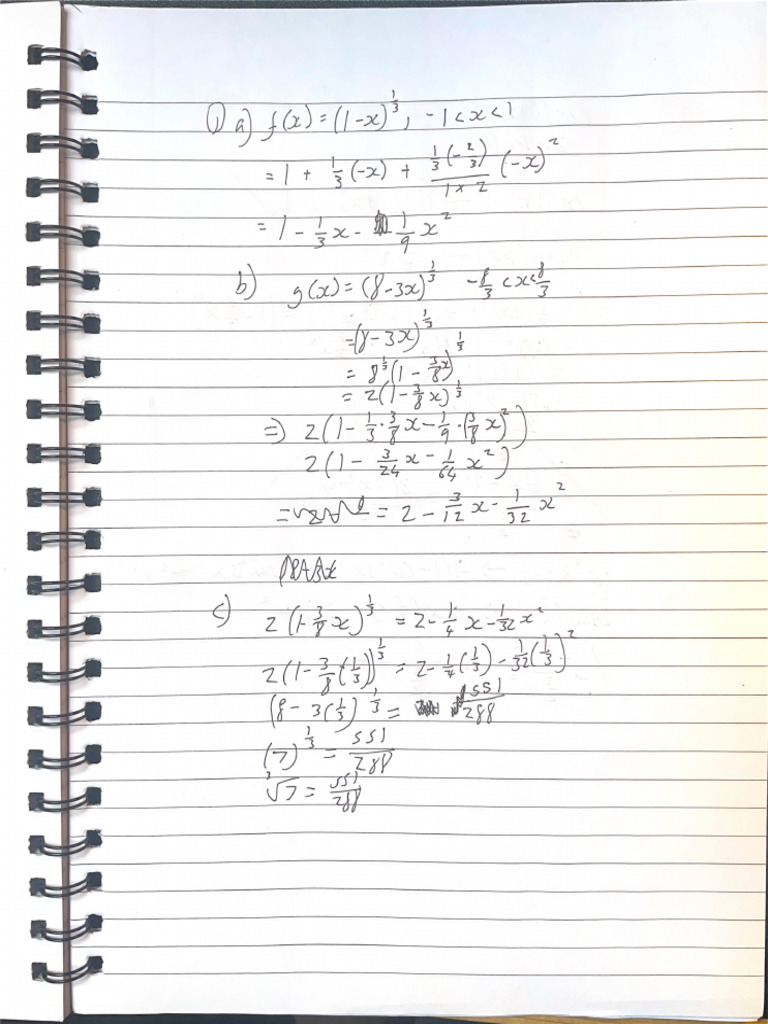 1) a) f(x) = (1-x)^{1/3}, -1 < x < 1
= 1 + 1/3 (-x) + (1/3 (-2/3))/(1×2) (-x)^2
= 1 - 1/3 x - 1/9 x^2
b) g(x) = (8-3x)^{1/3} -8/3 < x < 8/3
= (8-3x)^{1/3}
= 8^{1/3} (1 - 3/8 x)^{1/3}
= 2(1 - 3/8 x)^{1/3}
=> 2(1 - 1/3 · 3/8 x - 1/9 · (3/8 x)^2)
2(1 - 3/24 x - 1/64 x^2)
= = 2 - 3/12 x - 1/32 x^2
c) 2(1 - 3/8 x)^{1/3} = 2 - 1/4 x - 1/32 x^2
2(1 - 3/8 (1/3))^{1/3} = 2 - 1/4 (1/3) - 1/32 (1/3)^2
(8 - 3(1/3))^{1/3} = 551/288
(7)^{1/3} = 551/288
∛7 = 551/288